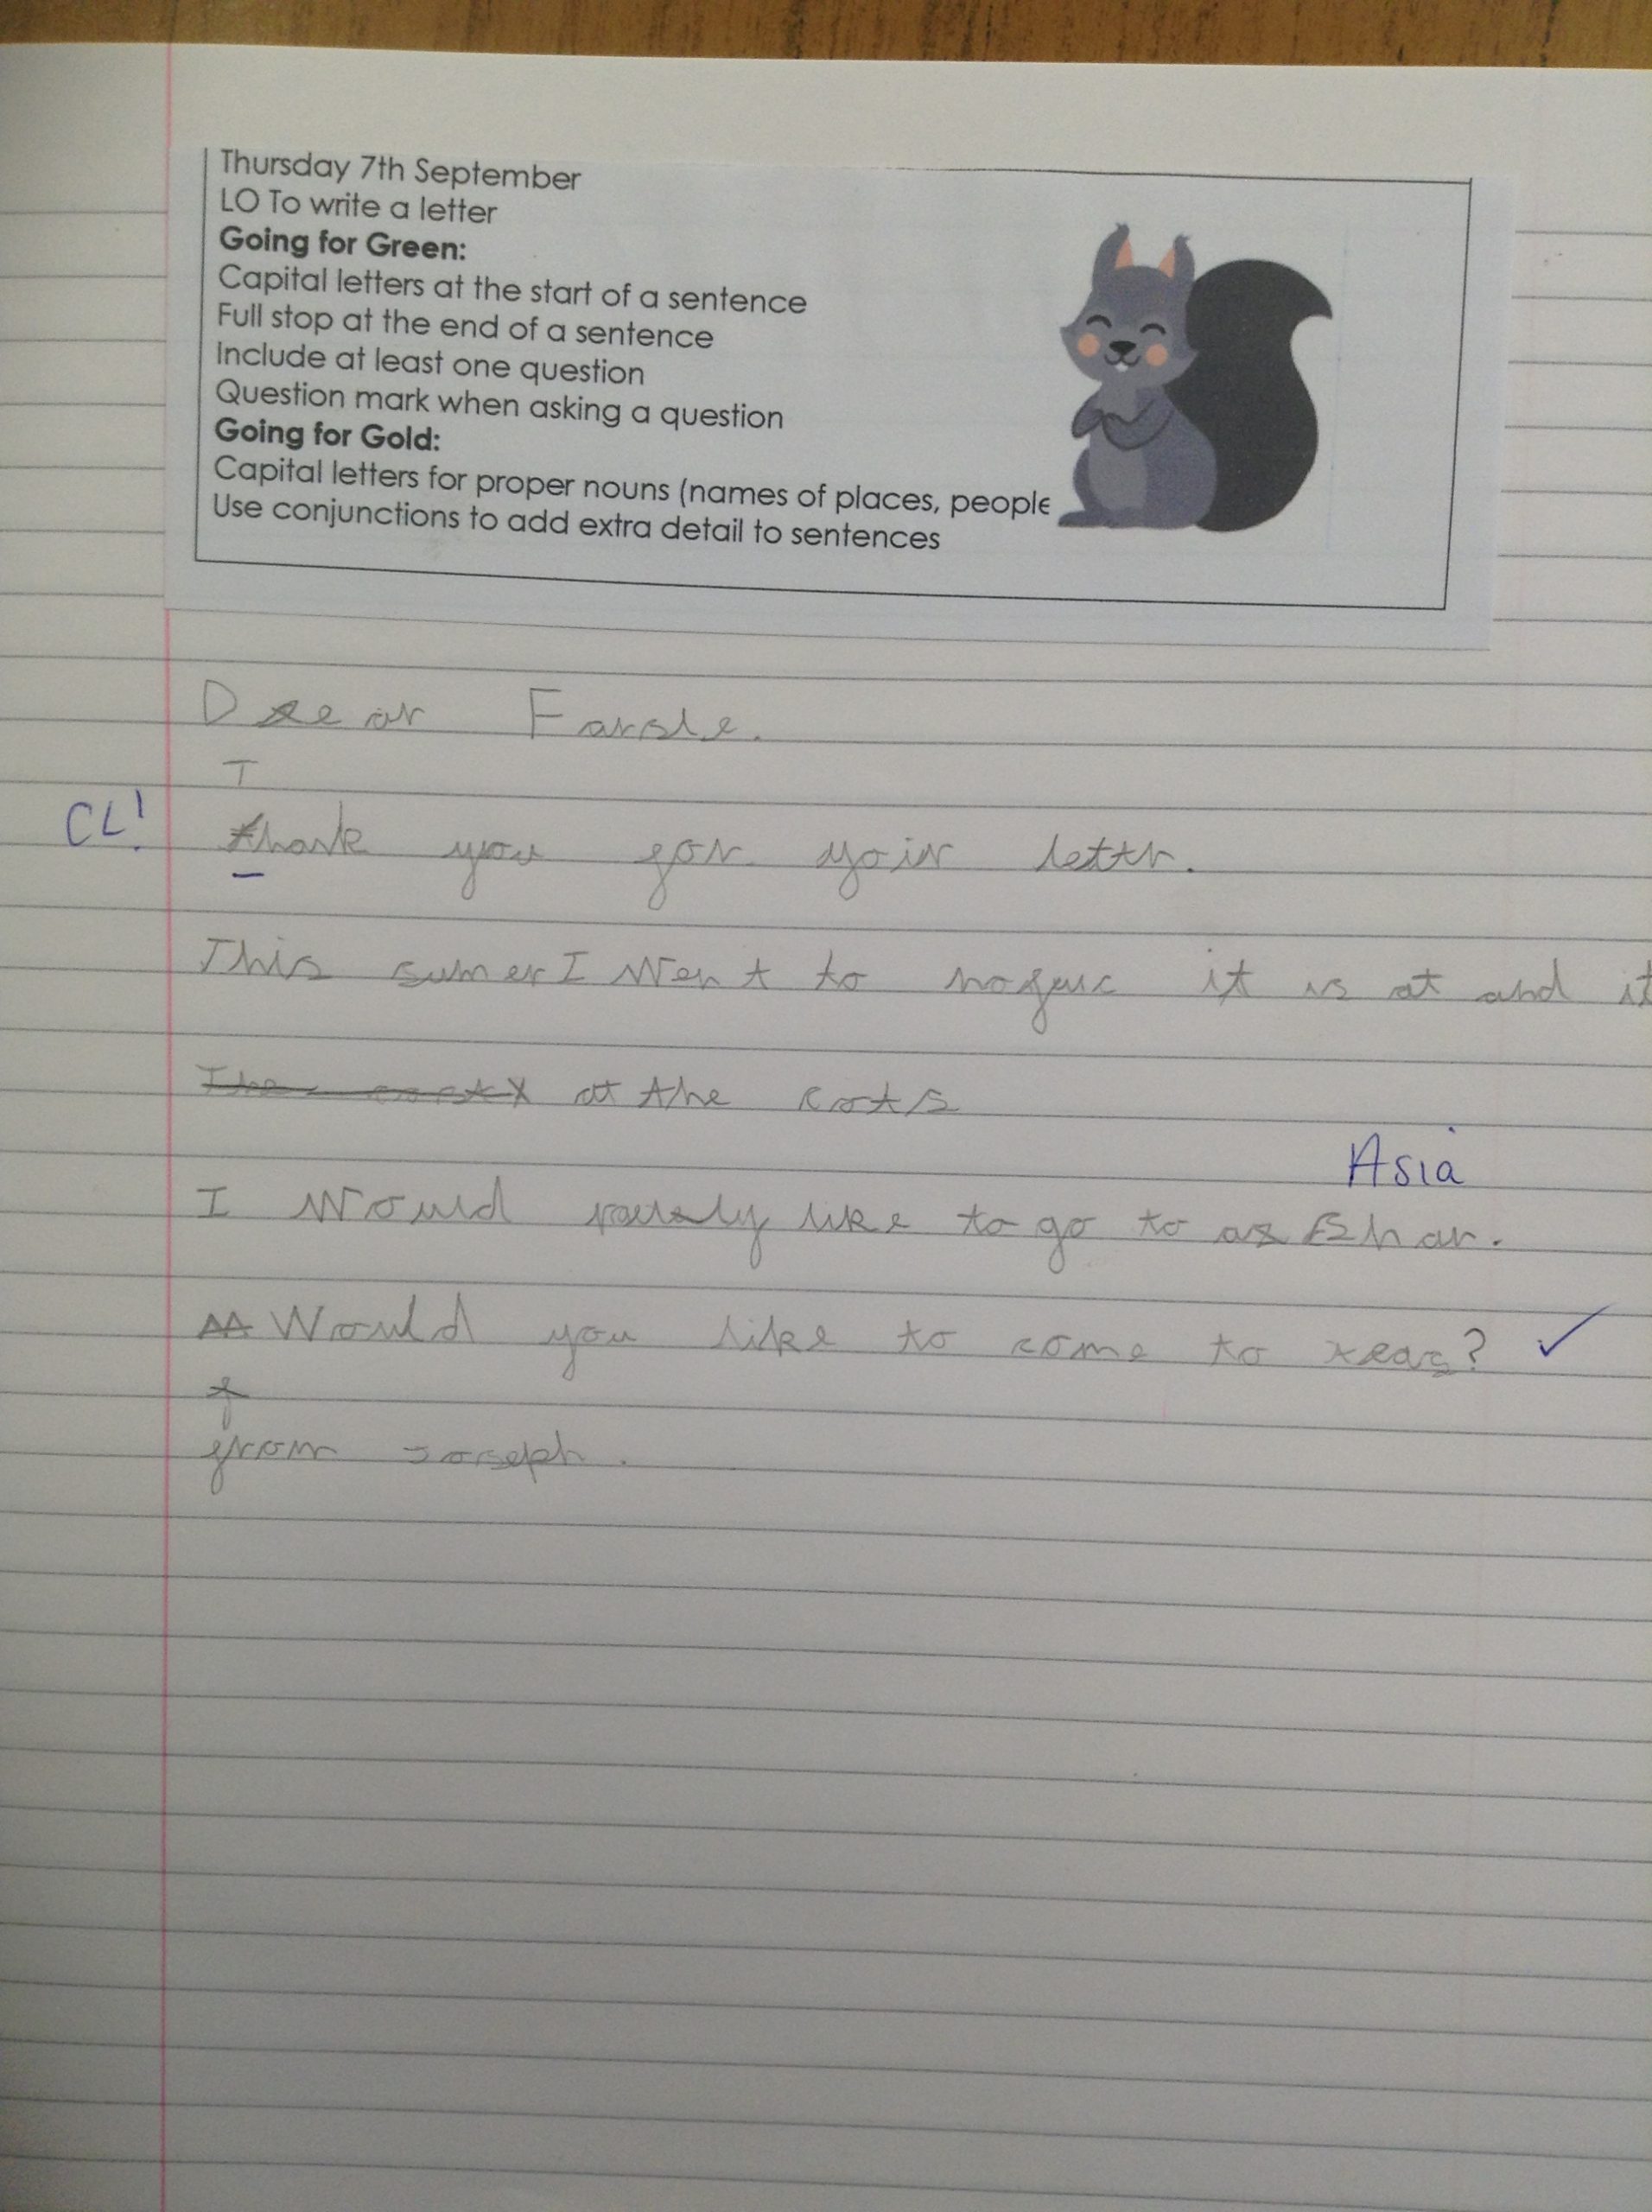 Thursday 7th September
LO To write a letter
Going for Green:
Capital letters at the start of a sentence
Full stop at the end of a sentence
Include at least one question
Question mark when asking a question
Going for Gold:
Capital letters for proper nouns (names of places, people
Use conjunctions to add extra detail to sentences
Dear Farsle.
T
CL! thank you for your lettr.
This sumer I Went to it is at and it
at the cots
Asia
I Would like to go to
Would you like to come to ? ✓
from Joseph.